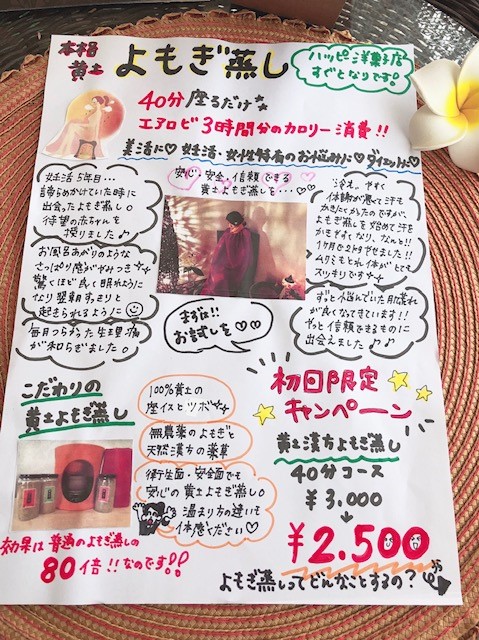 本格
黄土
よもぎ蒸し
ハッピー洋菓子店
すぐとなりです!
40分 座るだけ
エアロビ 3時間分のカロリー消費!!
美活に♡ 妊活・女性特有のお悩みに♡ ダイエットに♡
妊活5年目…
諦めかけていた時に
出会ったよもぎ蒸し。
待望の赤ちゃんを
授りました♪
お風呂あがりのような
さっぱり感がやみつき
驚くほど良く眠れように
なり翌朝すっきりと
起きられるように
毎月つらかった生理痛
が和らぎました。
安心・安全・信頼できる
黄土よもぎ蒸しを…
まずは!!
お試しを♡♡
冷え。やすく
体調が悪くて汗も
かきにくかったのですが、
よもぎ蒸しを始めて汗を
かきやすくなり、なんと!!
1ヶ月で2kgやせました!!
ムクミもとれ体がとても
スッキリです
ずっと悩んでいた肌荒れ
が良くなってきています!!
やっと信頼できるものに
出会えました♪♪
こだわりの
黄土よもぎ蒸し
100%黄土の
座イスとツボ
無農薬のよもぎと
天然漢方の薬草
衛生面・安全面でも
安心の黄土よもぎ蒸し。
温まり方の違いを
体感ください♡
効果は普通のよもぎ蒸しの
80倍!!なのです!!
初回限定
キャンペーン
黄土漢方よもぎ蒸し
40分コース
¥3,000
↓
¥2.500
よもぎ蒸しってどんなことするの?